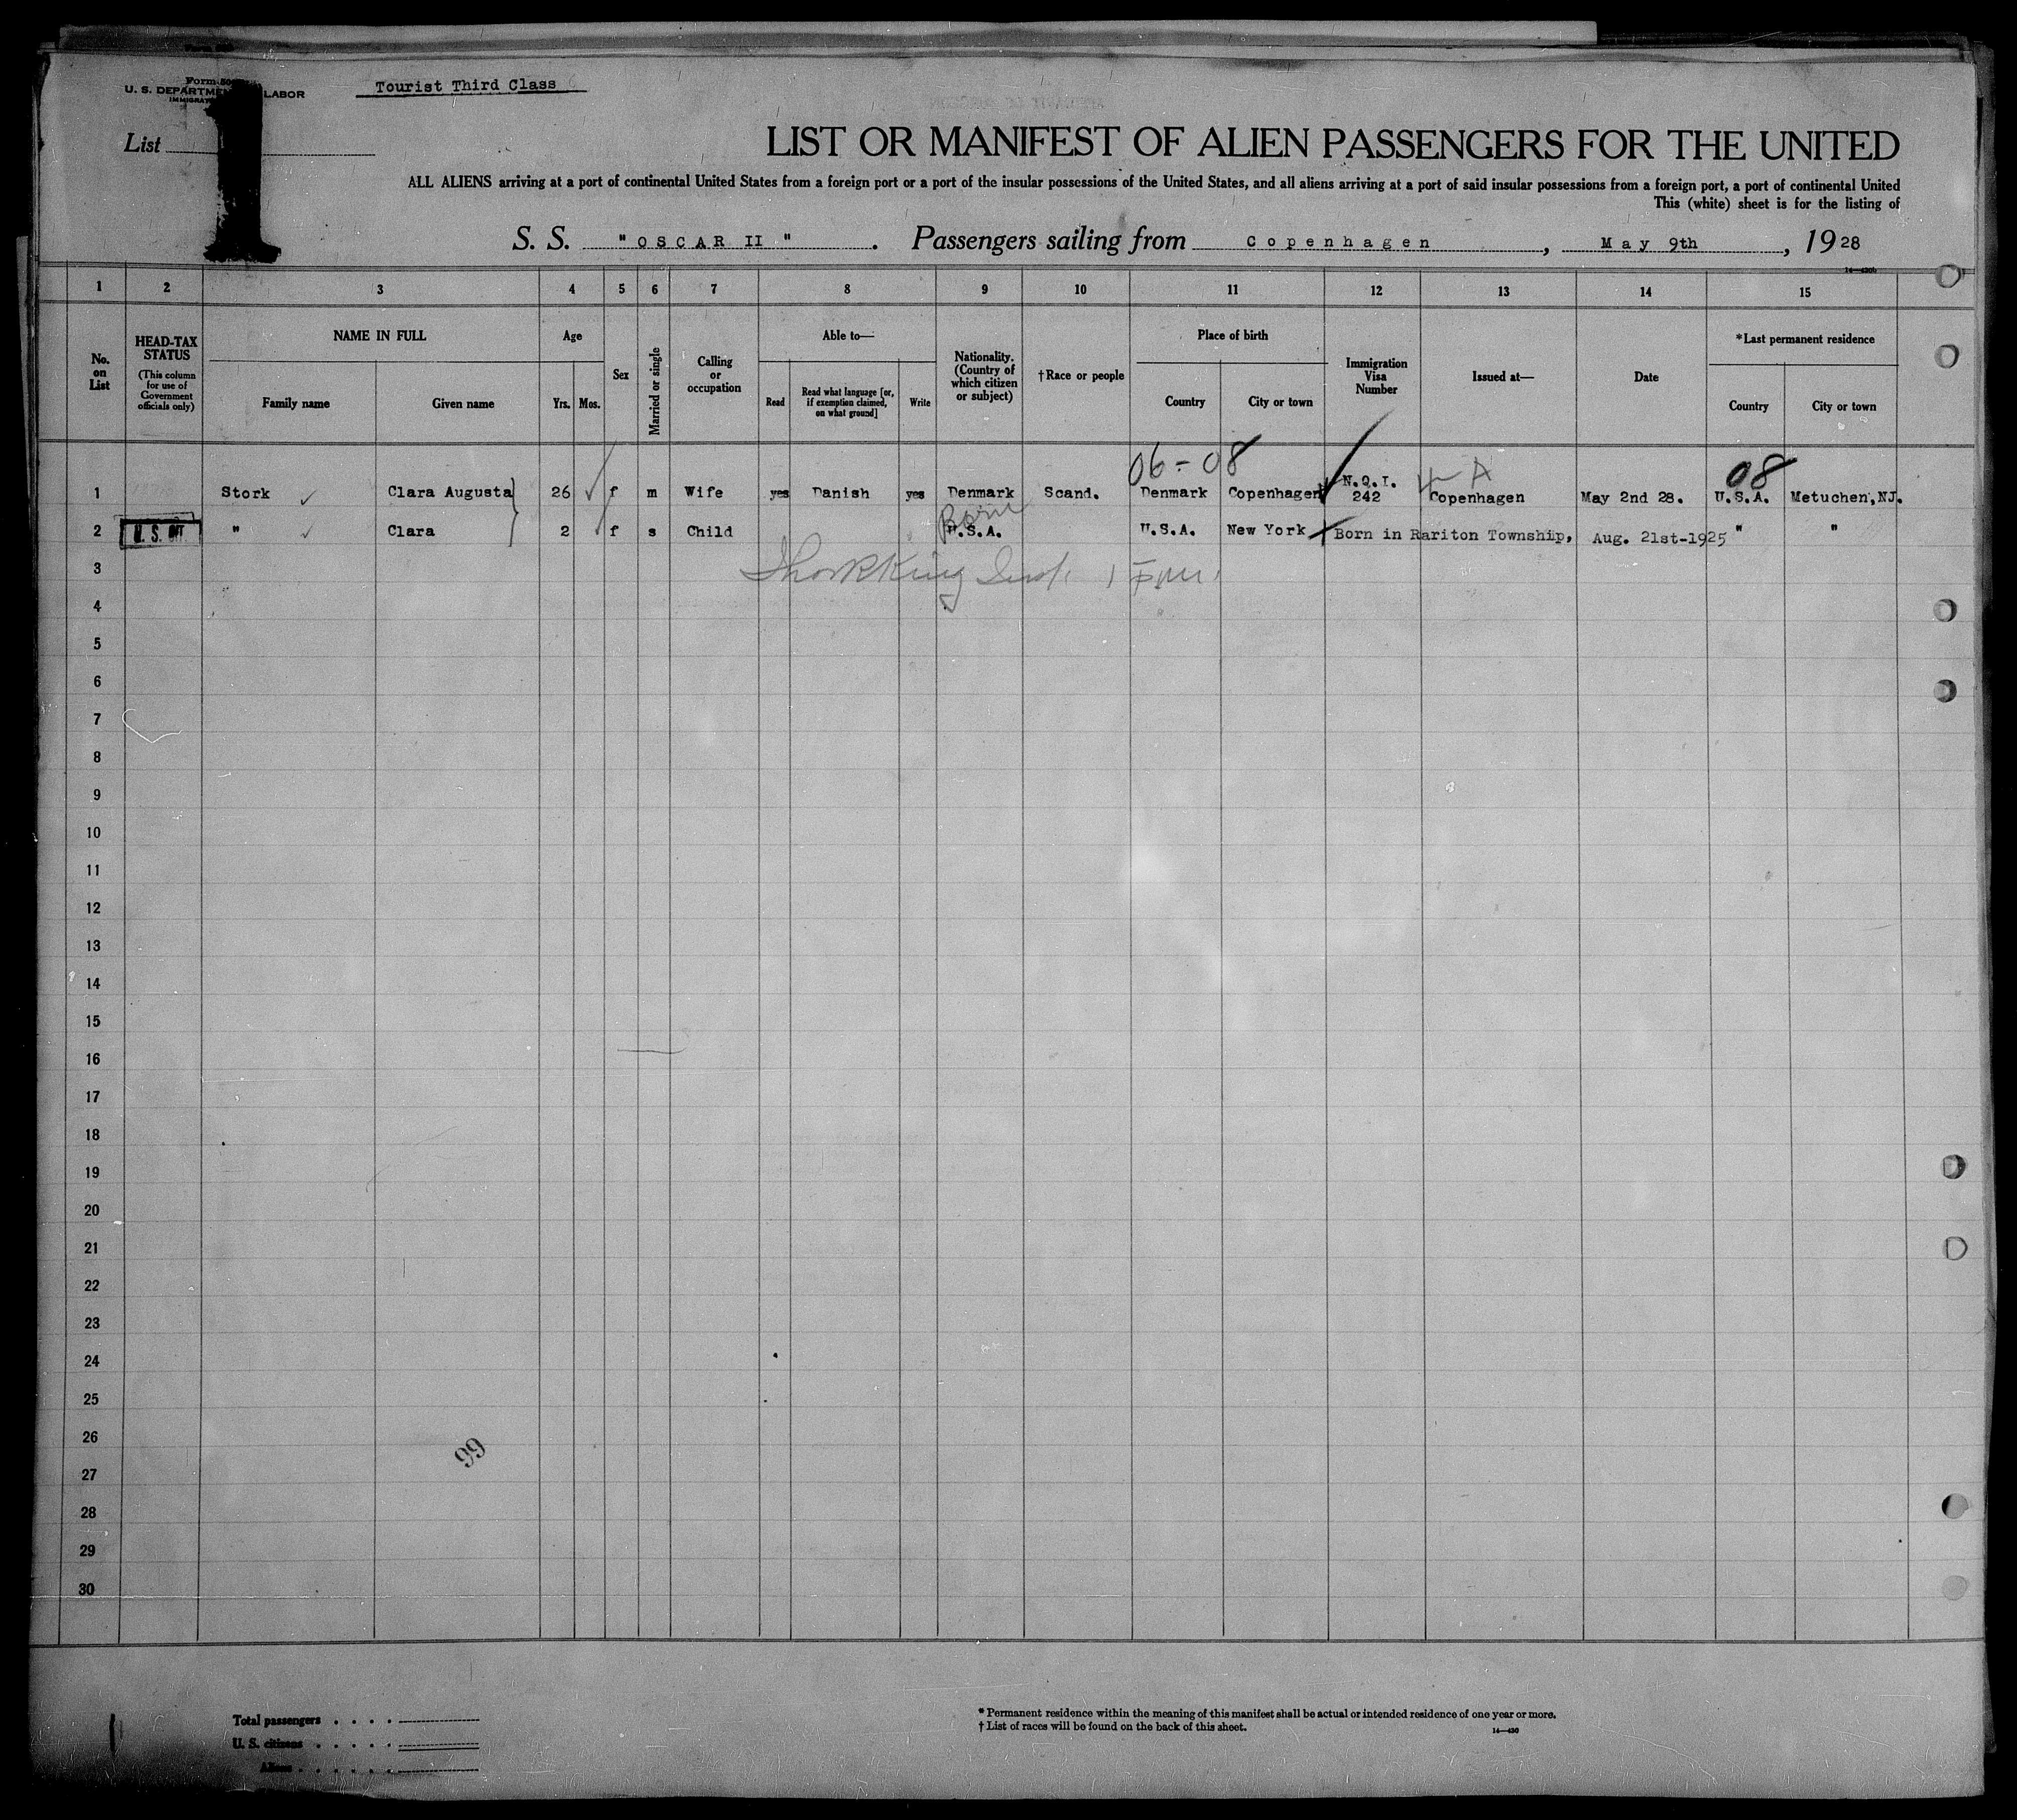 Form 500
U. S. DEPARTMENT LABOR
Tourist Third Class
List 1
LIST OR MANIFEST OF ALIEN PASSENGERS FOR THE UNITED
ALL ALIENS arriving at a port of continental United States from a foreign port or a port of the insular possessions of the United States, and all aliens arriving at a port of said insular possessions from a foreign port, a port of continental United
This (white) sheet is for the listing of
S. S. "OSCAR II". Passengers sailing from Copenhagen, May 9th, 1928
1 2 3 4 5 6 7 8 9 10 11 12 13 14 15
No. on List
HEAD-TAX STATUS (This column for use of Government officials only)
NAME IN FULL
Family name Given name
Age
Yrs. Mos.
Sex
Married or single
Calling or occupation
Able to—
Read Read what language [or, if exemption claimed, on what ground] Write
Nationality. (Country of which citizen or subject)
†Race or people
Place of birth
Country City or town
Immigration Visa Number
Issued at—
Date
*Last permanent residence
Country City or town
06-08 4-A 08
1 Stork Clara Augusta 26 f m Wife yes Danish yes Denmark Scand. Denmark Copenhagen N.Q.I. 242 Copenhagen May 2nd 28. U.S.A. Metuchen, NJ.
Born
2 U. S. CIT " Clara 2 f s Child U.S.A. U.S.A. New York Born in Rariton Township, Aug. 21st-1925 " "
3
4
5
6
7
8
9
10
11
12
13
14
15
16
17
18
19
20
21
22
23
24
25
26
99
27
28
29
30
Total passengers . . . .
U. S. citizens . . . . .
Aliens . . . . . .
* Permanent residence within the meaning of this manifest shall be actual or intended residence of one year or more.
† List of races will be found on the back of this sheet.
14—430